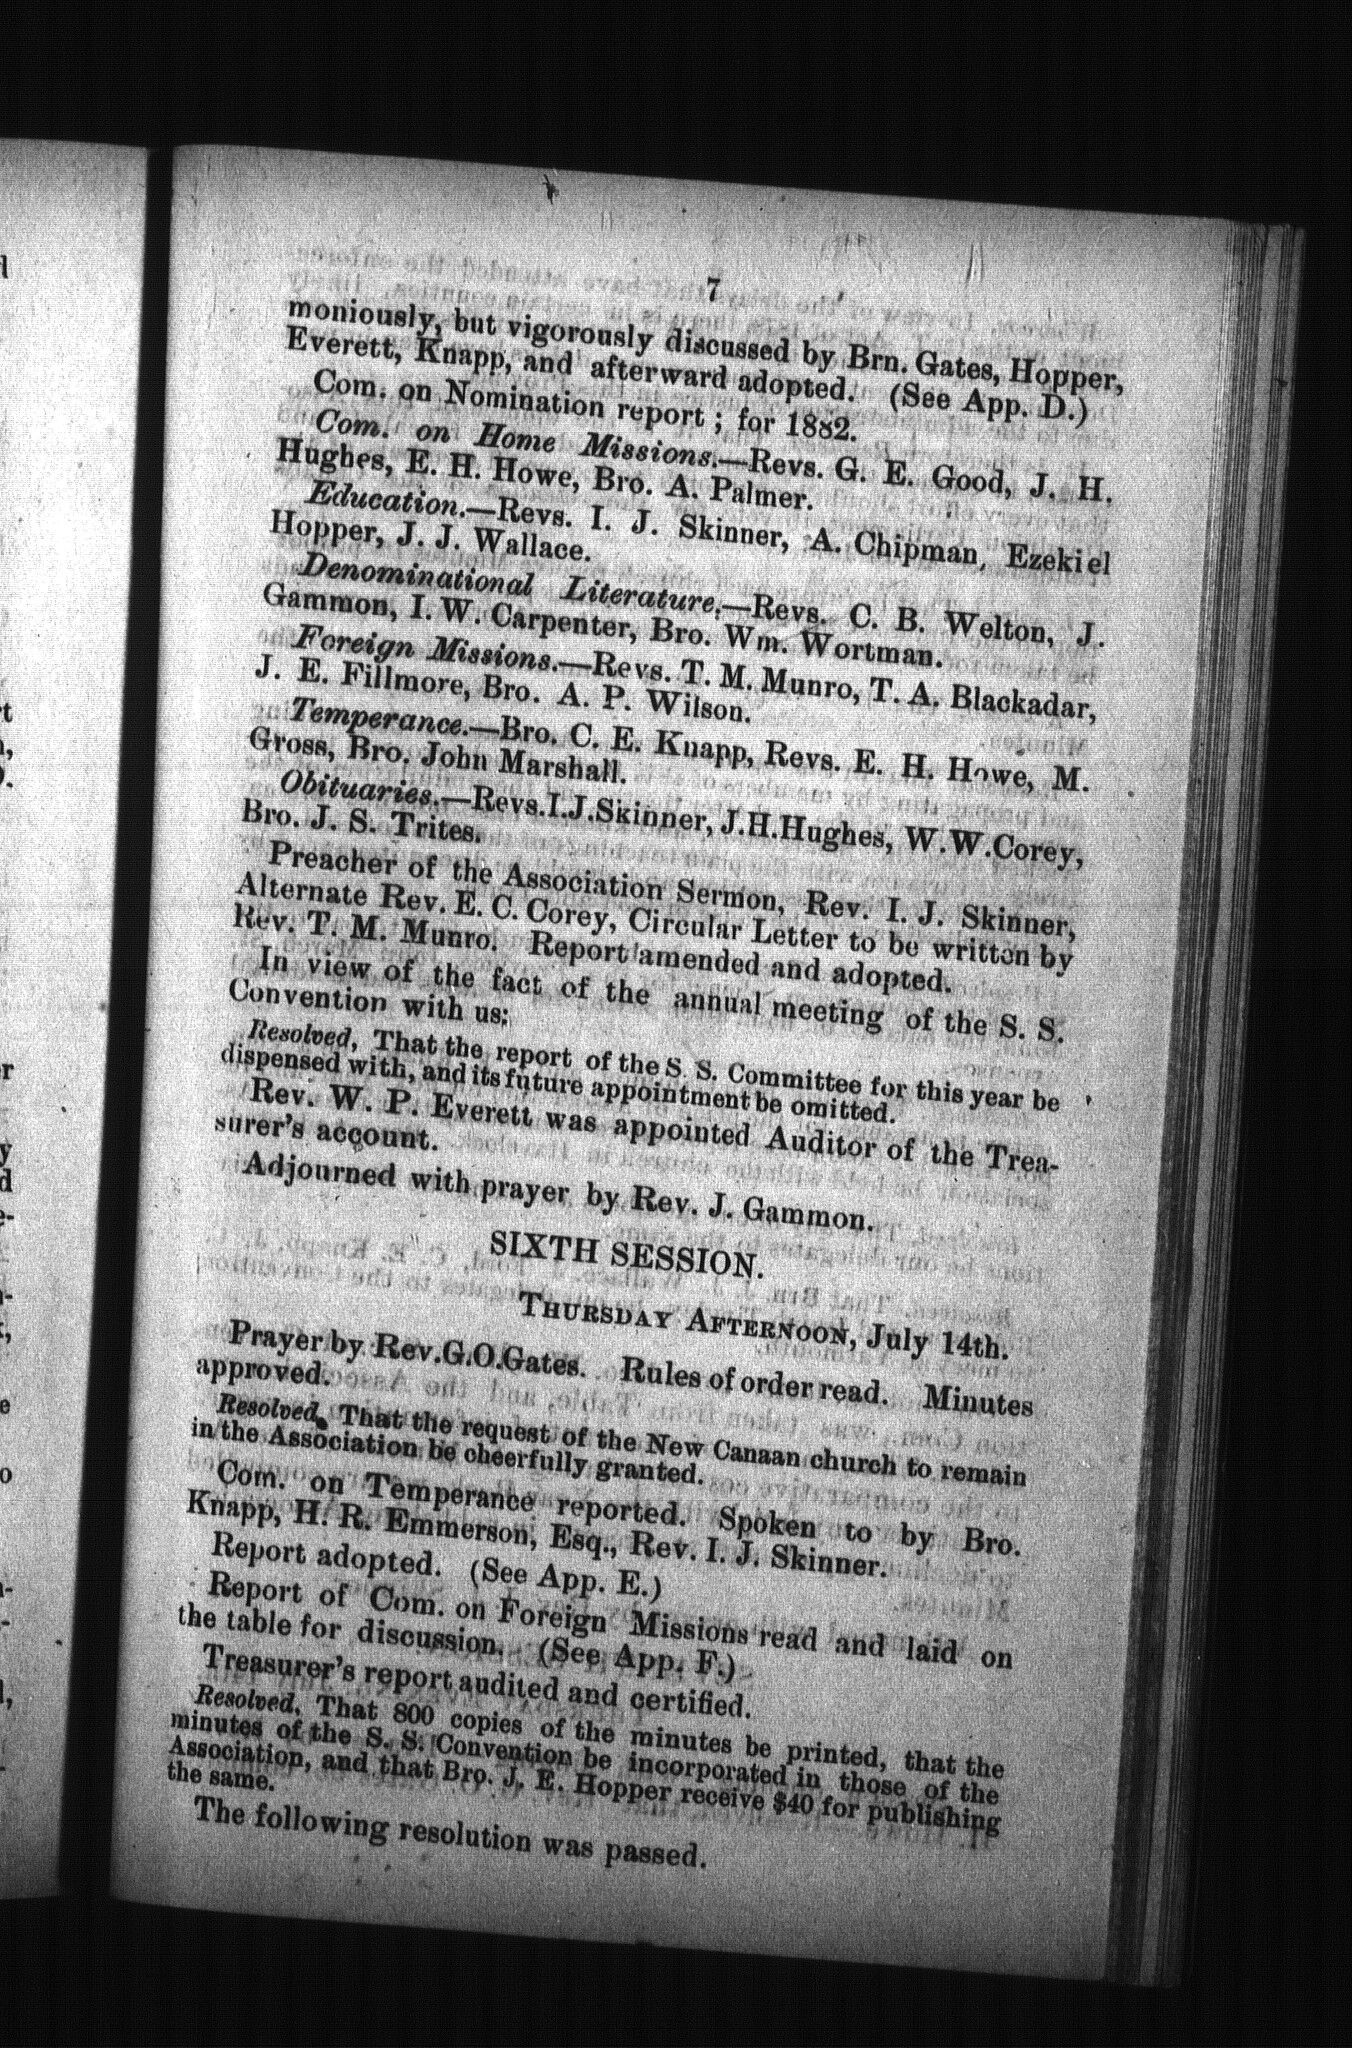 7
moniously, but vigorously discussed by Brn. Gates, Hopper,
Everett, Knapp, and afterward adopted. (See App. D.)
Com. on Nomination report ; for 1882.
Com. on Home Missions.—Revs. G. E. Good, J. H.
Hughes, E. H. Howe, Bro. A. Palmer.
Education.—Revs. I. J. Skinner, A. Chipman, Ezekiel
Hopper, J. J. Wallace.
Denominational Literature.—Revs. C. B. Welton, J.
Gammon, I. W. Carpenter, Bro. Wm. Wortman.
Foreign Missions.—Revs. T. M. Munro, T. A. Blackadar,
J. E. Fillmore, Bro. A. P. Wilson.
Temperance.—Bro. C. E. Knapp, Revs. E. H. Howe, M.
Gross, Bro. John Marshall.
Obituaries.—Revs. I. J. Skinner, J. H. Hughes, W. W. Corey,
Bro. J. S. Trites.
Preacher of the Association Sermon, Rev. I. J. Skinner,
Alternate Rev. E. C. Corey, Circular Letter to be written by
Rev. T. M. Munro. Report amended and adopted.
In view of the fact of the annual meeting of the S. S.
Convention with us:
Resolved, That the report of the S. S. Committee for this year be
dispensed with, and its future appointment be omitted.
Rev. W. P. Everett was appointed Auditor of the Trea-
surer's account.
Adjourned with prayer by Rev. J. Gammon.
SIXTH SESSION.
THURSDAY AFTERNOON, July 14th.
Prayer by Rev. G. O. Gates. Rules of order read. Minutes
approved.
Resolved, That the request of the New Canaan church to remain
in the Association be cheerfully granted.
Com. on Temperance reported. Spoken to by Bro.
Knapp, H. R. Emmerson, Esq., Rev. I. J. Skinner.
Report adopted. (See App. E.)
Report of Com. on Foreign Missions read and laid on
the table for discussion. (See App. F.)
Treasurer's report audited and certified.
Resolved, That 800 copies of the minutes be printed, that the
minutes of the S. S. Convention be incorporated in those of the
Association, and that Bro. J. E. Hopper receive $40 for publishing
the same.
The following resolution was passed.